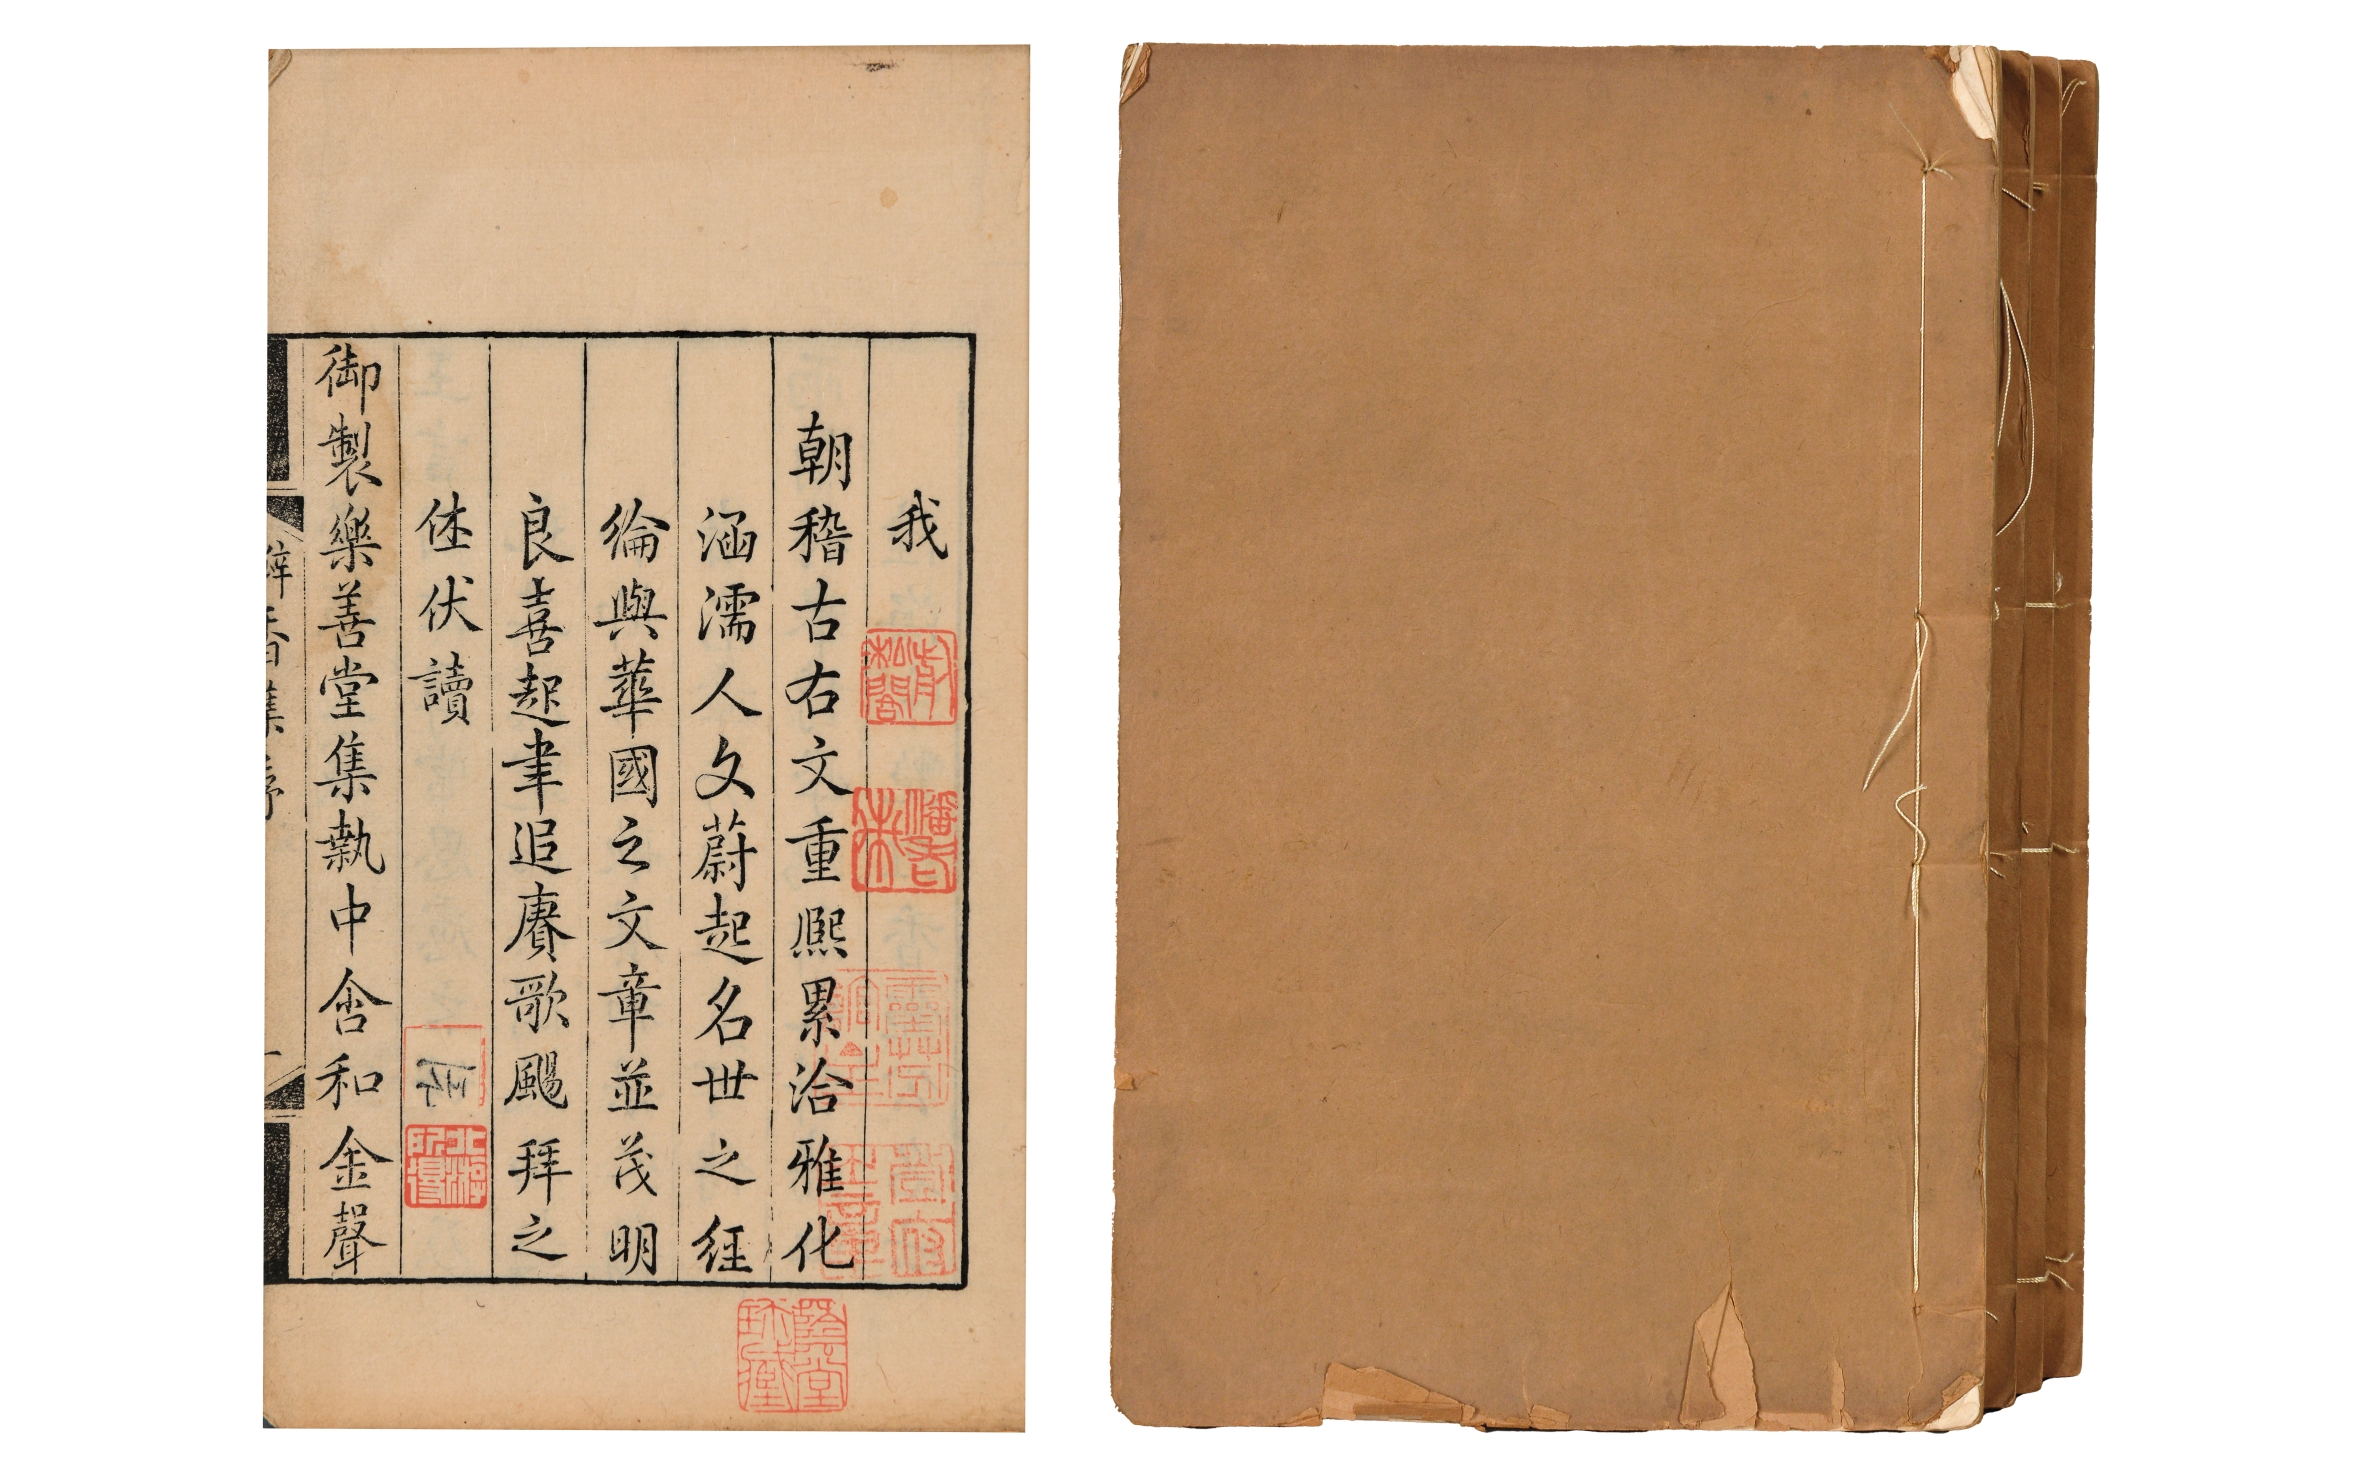 我
朝稽古右文重熙累洽雅化
涵濡人文蔚起名世之經
綸與華國之文章並茂明
良喜起聿追賡歌颺拜之
休伏讀
御製樂善堂集執中含和金聲
香集序